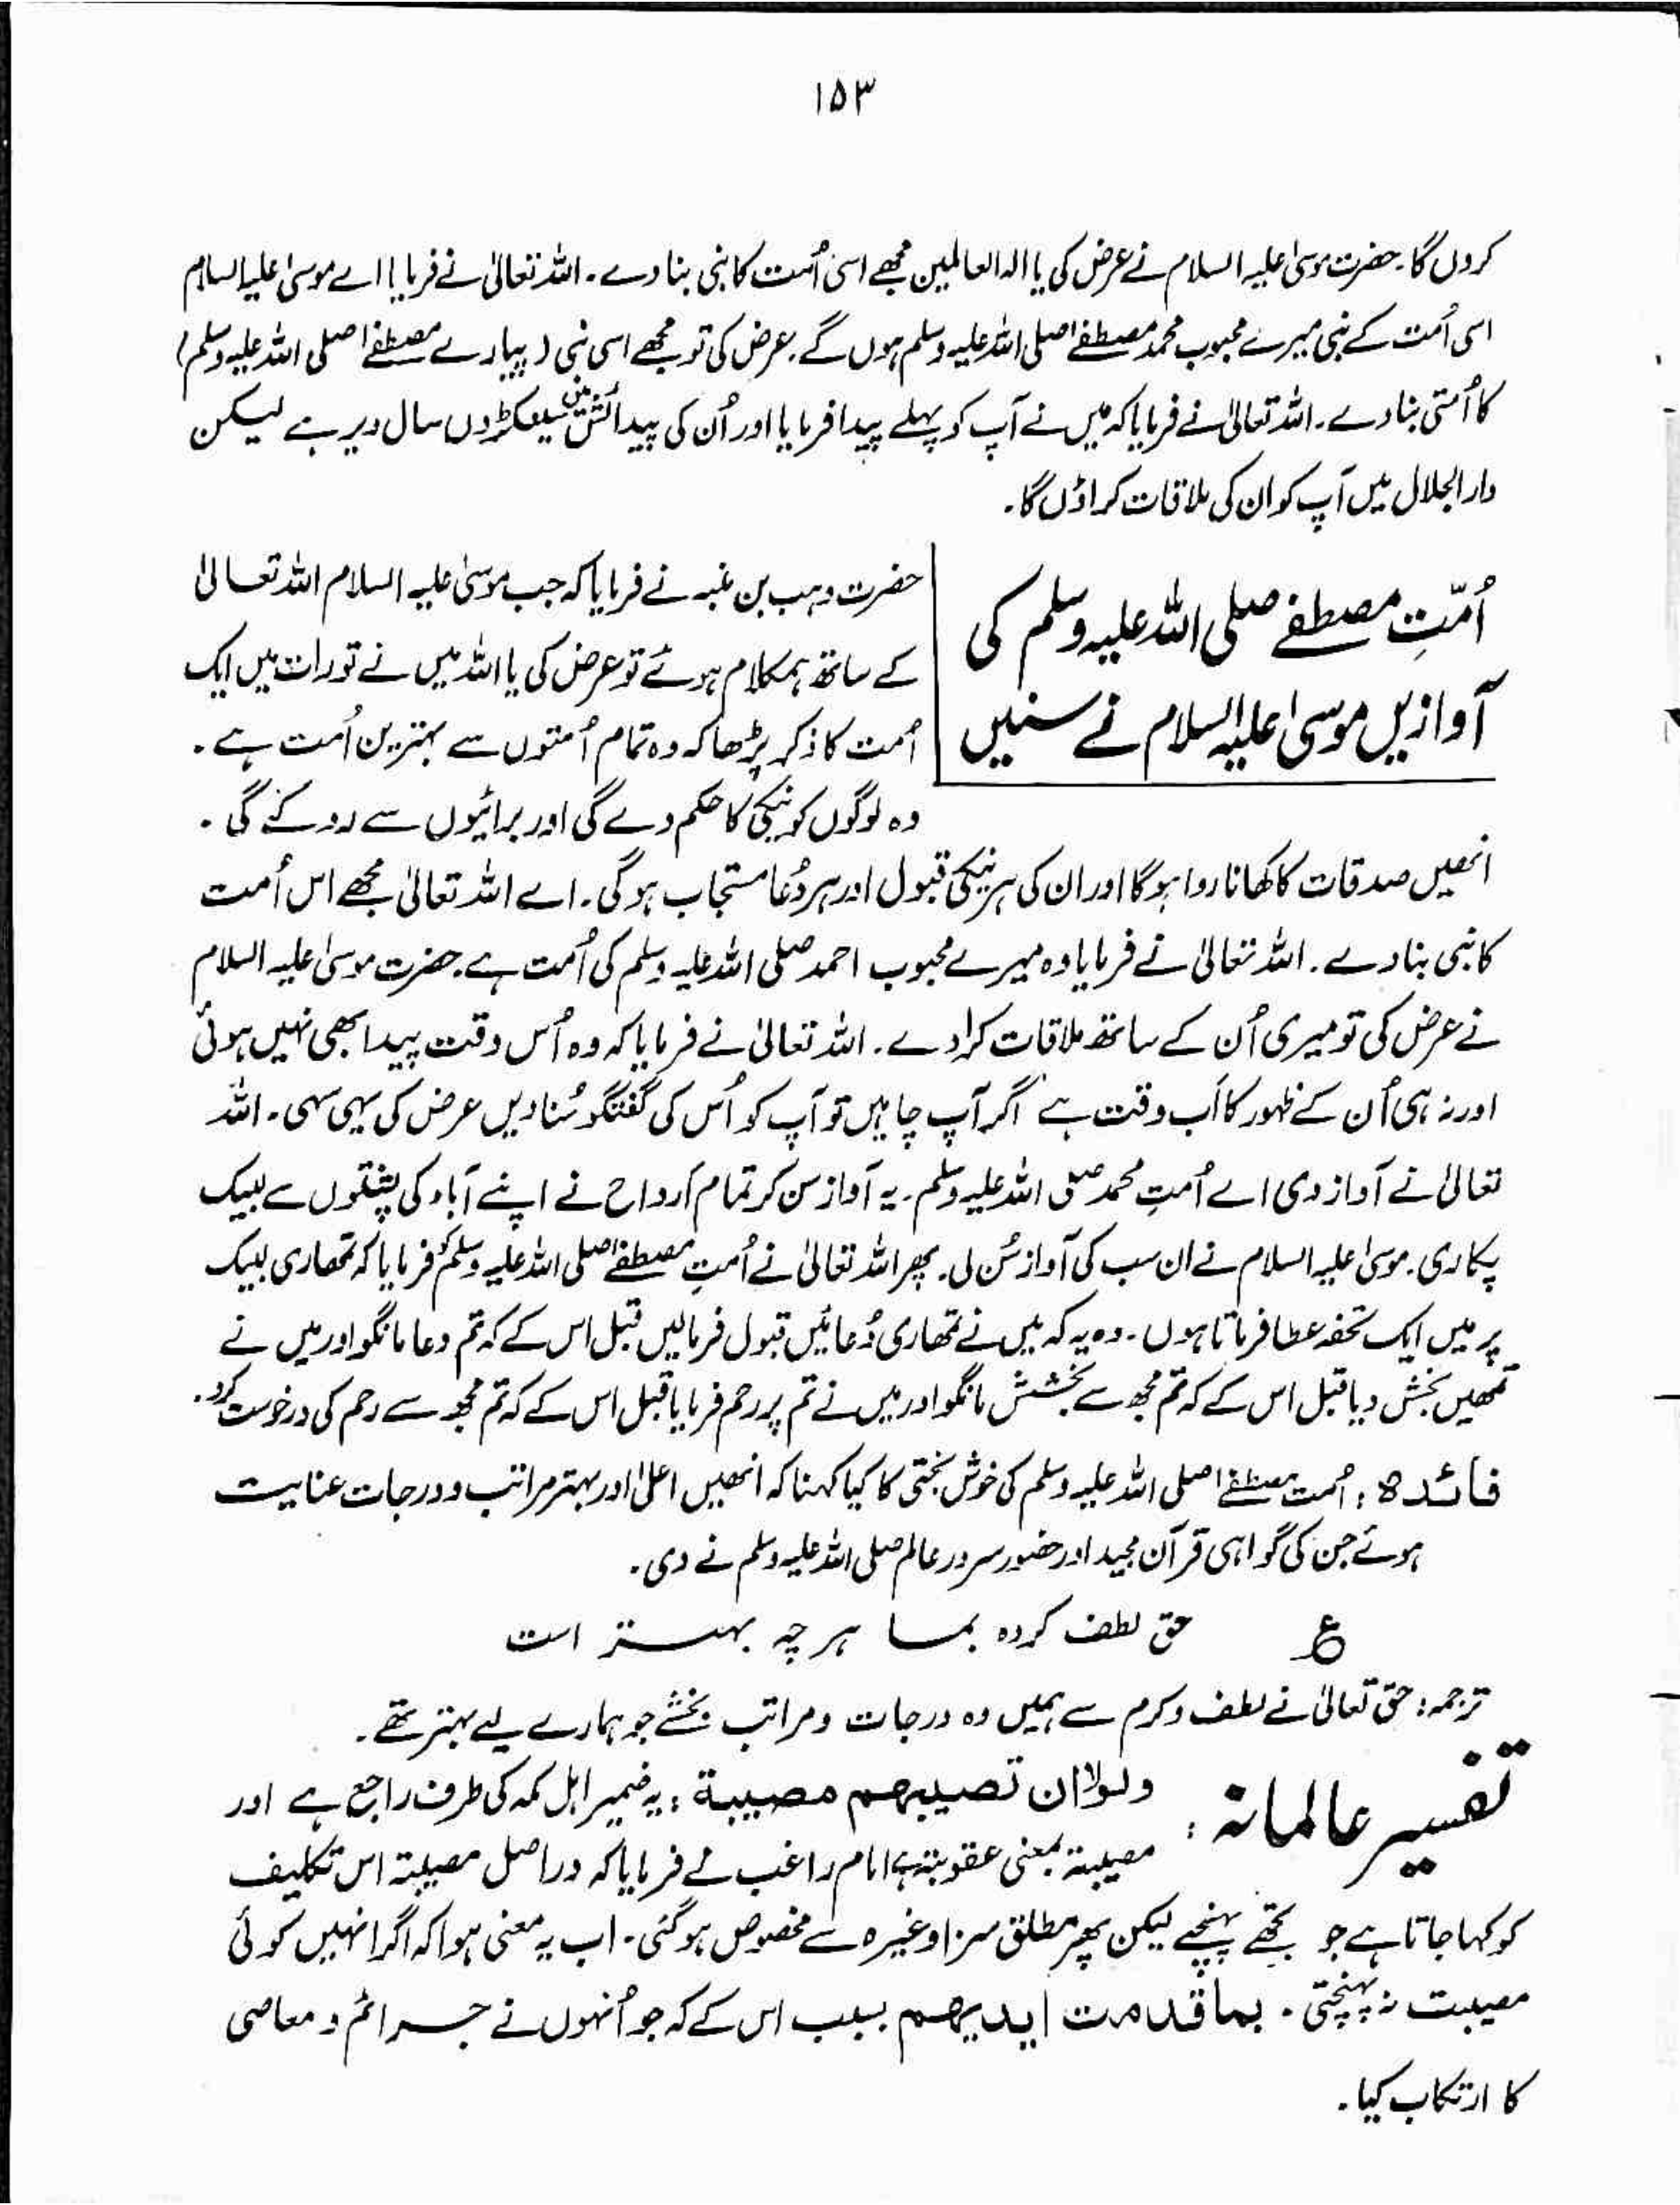 ۱۵۳
کروں گا۔ حضرت موسیٰ علیہ السلام نے عرض کی یا الٰہ العالمین مجھے اسی اُمت کا نبی بنا دے۔ اللہ تعالیٰ نے فرمایا اے موسیٰ علیہ السلام
اسی اُمت کے نبی میرے محبوب محمد مصطفےٰ صلی اللہ علیہ وسلم ہوں گے۔ عرض کی تو مجھے اسی نبی (پیارے مصطفےٰ صلی اللہ علیہ وسلم)
کا اُمتی بنا دے۔ اللہ تعالیٰ نے فرمایا کہ میں نے آپ کو پہلے پیدا فرمایا اور اُن کی پیدائش میں سینکڑوں سال دیر ہے لیکن
دار الجلال میں آپ کو ان کی ملاقات کراؤں گا۔
اُمّتِ مصطفےٰ صلی اللہ علیہ وسلم کی
آوازیں موسیٰ علیہ السلام نے سنیں
حضرت وہب بن منبہ نے فرمایا کہ جب موسیٰ علیہ السلام اللہ تعالیٰ
کے ساتھ ہمکلام ہوئے تو عرض کی یا اللہ میں نے تورات میں ایک
اُمت کا ذکر پڑھا کہ وہ تمام اُمتوں سے بہترین اُمت ہے۔
وہ لوگوں کو نیکی کا حکم دے گی اور برائیوں سے روکے گی۔
انھیں صدقات کا کھانا روا ہوگا اور ان کی ہر نیکی قبول اور ہر دُعا مستجاب ہوگی۔ اے اللہ تعالیٰ مجھے اس اُمت
کا نبی بنا دے۔ اللہ تعالیٰ نے فرمایا وہ میرے محبوب احمد صلی اللہ علیہ وسلم کی اُمت ہے۔ حضرت موسیٰ علیہ السلام
نے عرض کی تو میری اُن کے ساتھ ملاقات کرا دے۔ اللہ تعالیٰ نے فرمایا کہ وہ اُس وقت پیدا بھی نہیں ہوئی
اور نہ ہی اُن کے ظہور کا اَب وقت ہے اگر آپ چاہیں تو آپ کو اُس کی گفتگو سُنا دیں عرض کی یہی سہی۔ اللہ
تعالیٰ نے آواز دی اے اُمتِ محمد صلی اللہ علیہ وسلم۔ یہ آواز سن کر تمام اَرواح نے اپنے آباء کی پشتوں سے لبیک
پکاری۔ موسیٰ علیہ السلام نے ان سب کی آواز سُن لی۔ پھر اللہ تعالیٰ نے اُمتِ مصطفےٰ صلی اللہ علیہ وسلم کو فرمایا کہ تمھاری لبیک
پر میں ایک تحفہ عطا فرماتا ہوں۔ وہ یہ کہ میں نے تمھاری دُعائیں قبول فرمالیں قبل اس کے کہ تم دعا مانگو اور میں نے
تمھیں بخش دیا قبل اس کے کہ تم مجھ سے بخشش مانگو اور میں نے تم پر رحم فرمایا قبل اس کے کہ تم مجھ سے رحم کی درخواست کرو۔
فائدہ: اُمت مصطفےٰ صلی اللہ علیہ وسلم کی خوش بختی کا کیا کہنا کہ انھیں اعلیٰ اور بہتر مراتب و درجات عنایت
ہوئے جن کی گواہی قرآن مجید اور حضور سرور عالم صلی اللہ علیہ وسلم نے دی۔
ع حق لطف کردہ بما ہر چہ بہتر است
ترجمہ: حق تعالیٰ نے لطف و کرم سے ہمیں وہ درجات و مراتب بخشے جو ہمارے لیے بہتر تھے۔
تفسیر عالمانہ: ولولا ان تصیبہم مصیبۃ: یہ ضمیر اہل مکہ کی طرف راجع ہے اور
مصیبۃ بمعنی عقوبتہ ہے امام راغب نے فرمایا کہ دراصل مصیبتہ اس تکلیف
کو کہا جاتا ہے جو تجھے پہنچے لیکن پھر مطلق سزا وغیرہ سے مخصوص ہوگئی۔ اب یہ معنی ہوا کہ اگر انہیں کوئی
مصیبت نہ پہنچتی۔ بما قدمت ایدیہم بسبب اس کے کہ جو اُنہوں نے جرائم و معاصی
کا ارتکاب کیا۔